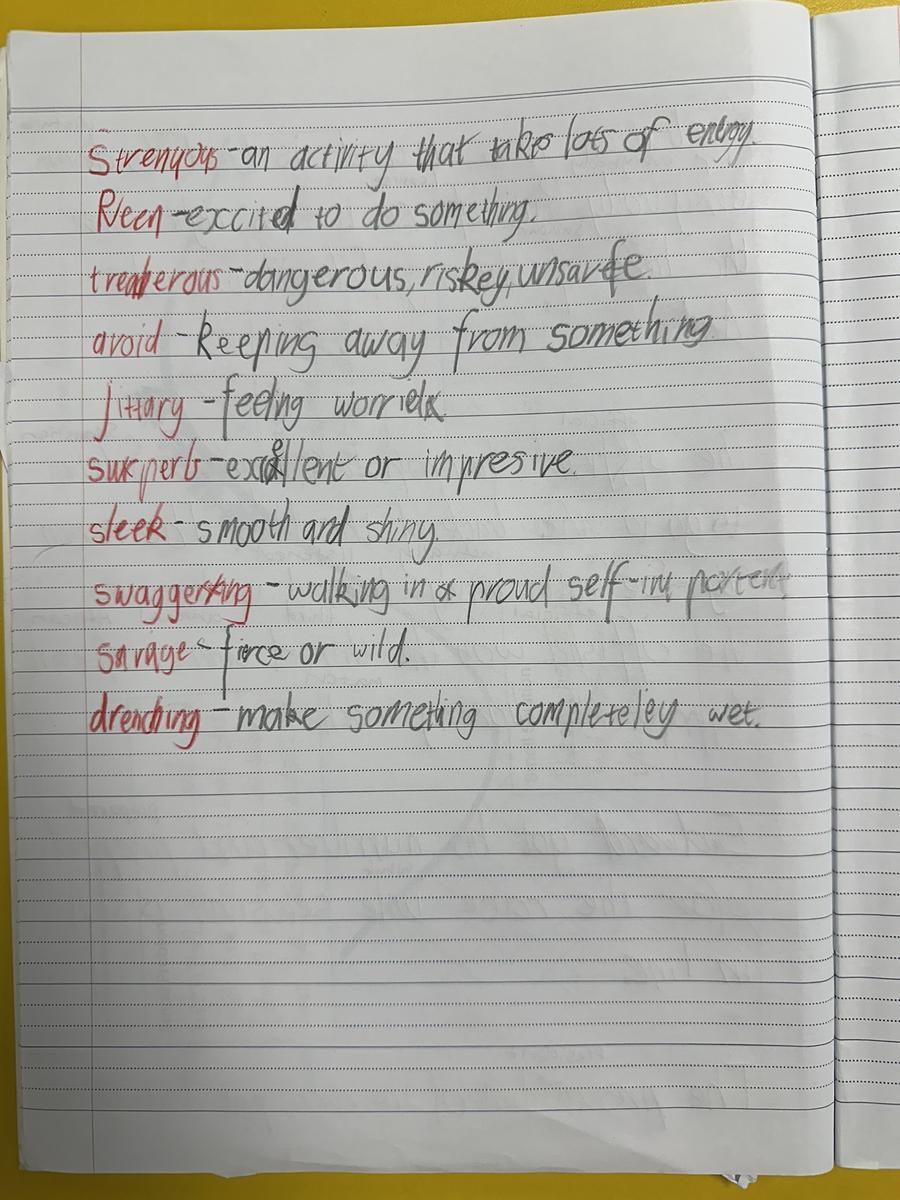 Strenyous - an activity that take lots of energy.
Keen - excited to do something.
treaherous - dangerous, riskey, unsarfe
avoid - keeping away from something
jittary - feeling worried
surperb - excellent or impresive.
sleek - smooth and shiny.
swaggering - walking in a proud self-importent
savage - fierce or wild.
drenching - make something completeley wet.